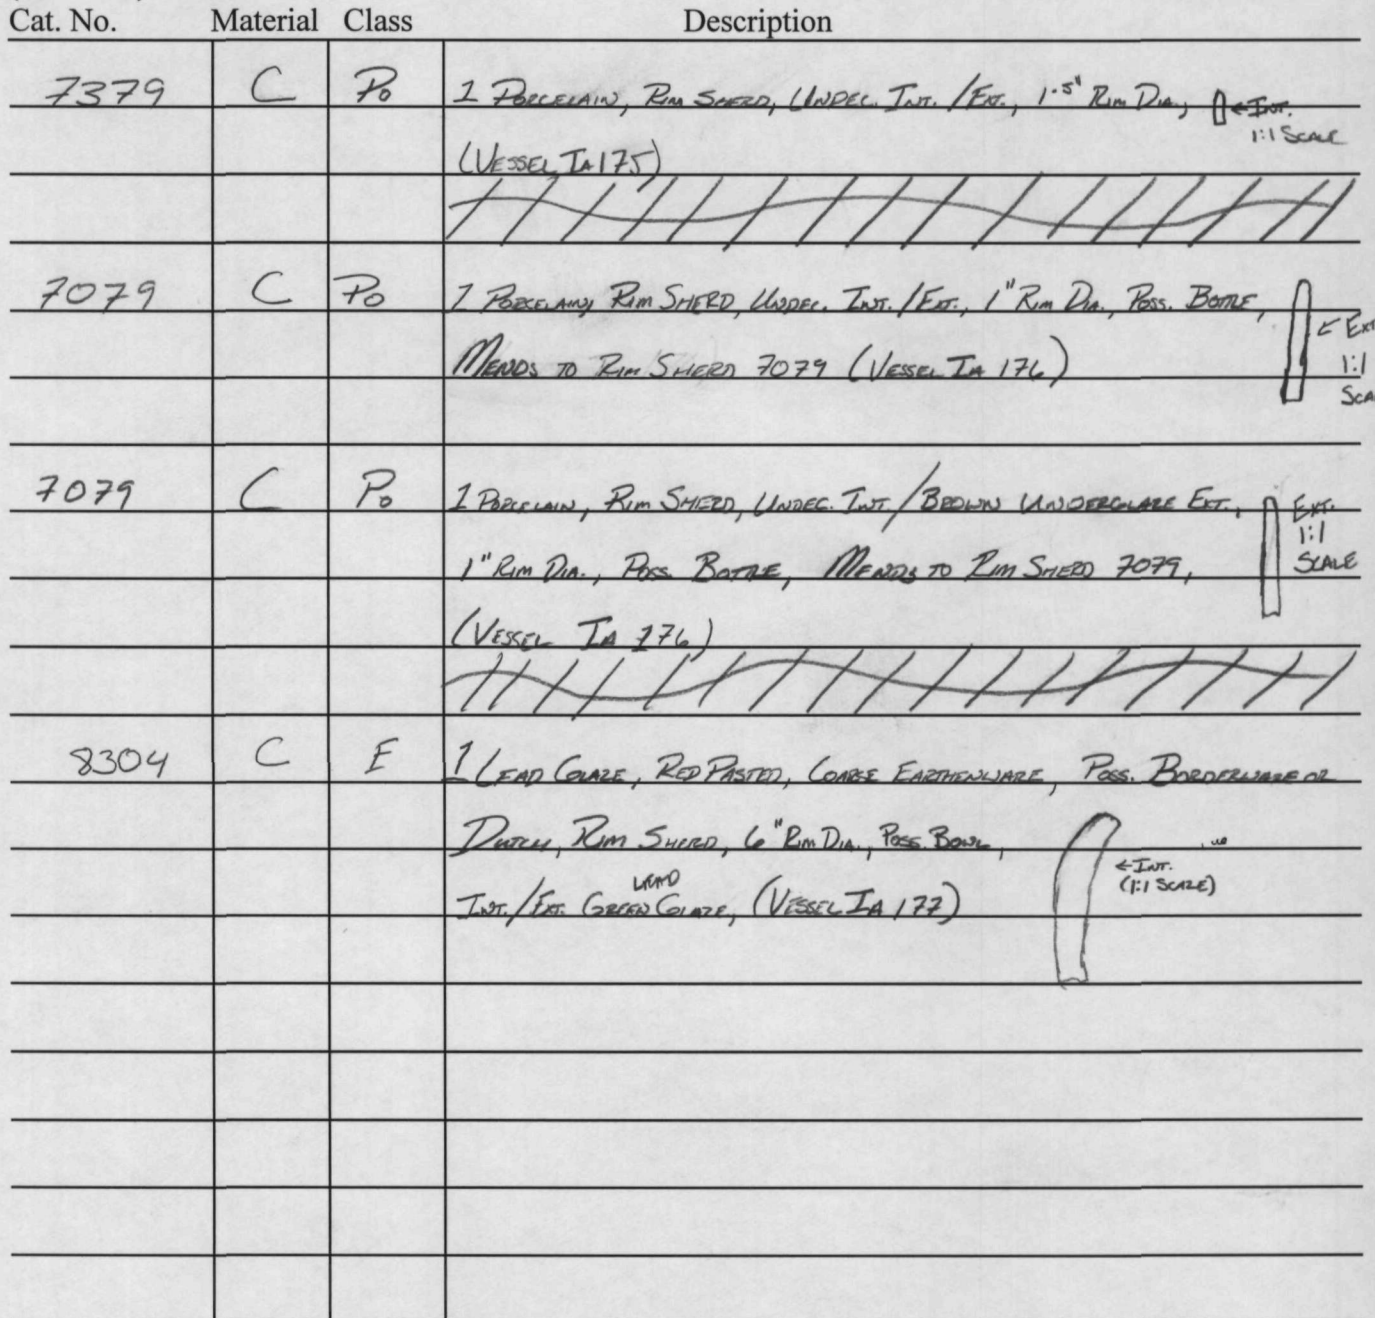 Cat. No. Material Class Description
7379 C Po 1 PORCELAIN, RIM SHERD, UNDEC. INT. / EXT., 1.5" RIM DIA., ← INT.
1:1 SCALE
(VESSEL IA 175)
7079 C Po 1 PORCELAIN, RIM SHERD, UNDEC. INT. / EXT., 1" RIM DIA., POSS. BOTTLE,
← EXT
MENDS TO RIM SHERD 7079 (VESSEL IA 176)
1:1
SCA
7079 C Po 1 PORCELAIN, RIM SHERD, UNDEC. INT. / BROWN UNDERGLAZE EXT.,
EXT.
1:1
SCALE
1" RIM DIA., POSS. BOTTLE, MENDS TO RIM SHERD 7079,
(VESSEL IA 176)
8304 C E 1 LEAD GLAZE, RED PASTED, COARSE EARTHENWARE, POSS. BORDERWARE OR
DUTCH, RIM SHERD, 6" RIM DIA., POSS. BOWL,
← INT.
(1:1 SCALE)
LEAD
INT. / EXT. GREEN GLAZE, (VESSEL IA 177)